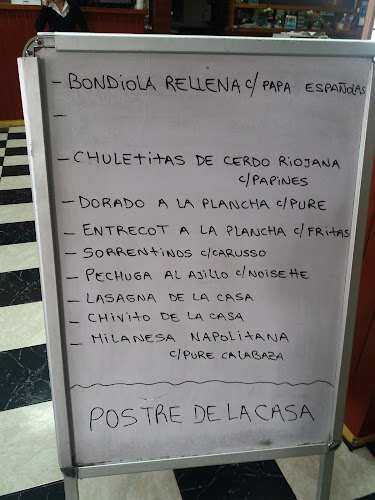 - BONDIOLA RELLENA C/ PAPA ESPAÑOLAS
-
- CHULETITAS DE CERDO RIOJANA
C/PAPINES
- DORADO A LA PLANCHA C/PURE
- ENTRECOT A LA PLANCHA C/FRITAS
- SORRENTINOS C/CARUSSO
- PECHUGA AL AJILLO C/NOISETTE
- LASAGNA DE LA CASA
- CHIVITO DE LA CASA
- MILANESA NAPOLITANA
C/PURE CALABAZA
POSTRE DE LA CASA